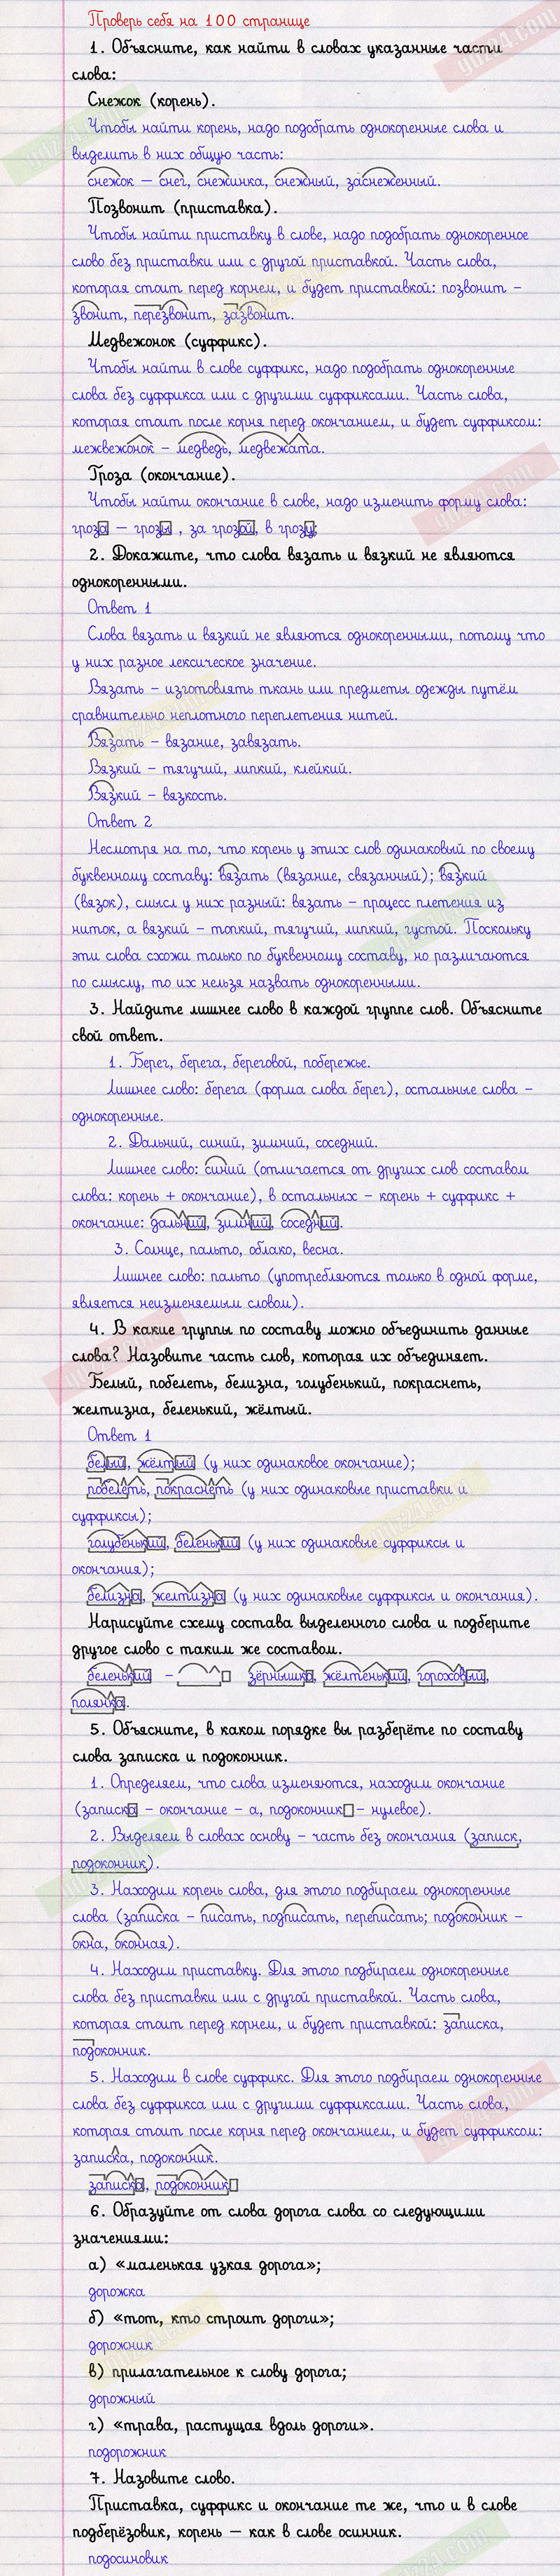 Проверь себя на 100 странице
1. Объясните, как найти в словах указанные части
слова:
Снежок (корень).
Чтобы найти корень, надо подобрать однокоренные слова и
выделить в них общую часть:
снежок – снег, снежинка, снежный, заснеженный.
Позвонит (приставка).
Чтобы найти приставку в слове, надо подобрать однокоренное
слово без приставки или с другой приставкой. Часть слова,
которая стоит перед корнем, и будет приставкой: позвонит –
звонит, перезвонит, зазвонит.
Медвежонок (суффикс).
Чтобы найти в слове суффикс, надо подобрать однокоренные
слова без суффикса или с другими суффиксами. Часть слова,
которая стоит после корня перед окончанием, и будет суффиксом:
межвежонок – медведь, медвежата.
Гроза (окончание).
Чтобы найти окончание в слове, надо изменить форму слова:
гроза – грозы , за грозой, в грозу;
2. Докажите, что слова вязать и вязкий не являются
однокоренными.
Ответ 1
Слова вязать и вязкий не являются однокоренными, потому что
у них разное лексическое значение.
Вязать – изготовлять ткань или предметы одежды путём
сравнительно неплотного переплетения нитей.
Вязать – вязание, завязать.
Вязкий – тягучий, липкий, клейкий.
Вязкий – вязкость.
Ответ 2
Несмотря на то, что корень у этих слов одинаковый по своему
буквенному составу: вязать (вязание, связанный); вязкий
(вязок), смысл у них разный: вязать – процесс плетения из
ниток, а вязкий – топкий, тягучий, липкий, густой. Поскольку
эти слова схожи только по буквенному составу, но различаются
по смыслу, то их нельзя назвать однокоренными.
3. Найдите лишнее слово в каждой группе слов. Объясните
свой ответ.
1. Берег, берега, береговой, побережье.
Лишнее слово: берега (форма слова берег), остальные слова –
однокоренные.
2. Дальний, синий, зимний, соседний.
Лишнее слово: синий (отличается от других слов составом
слова: корень + окончание), в остальных – корень + суффикс +
окончание: дальний, зимний, соседний.
3. Солнце, пальто, облако, весна.
Лишнее слово: пальто (употребляются только в одной форме,
является неизменяемым словом).
4. В какие группы по составу можно объединить данные
слова? Назовите часть слов, которая их объединяет.
Белый, побелеть, белизна, голубенький, покраснеть,
желтизна, беленький, жёлтый.
Ответ 1
белый, жёлтый (у них одинаковое окончание);
побелеть, покраснеть (у них одинаковые приставки и
суффиксы);
голубенький, беленький (у них одинаковые суффиксы и
окончания);
белизна, желтизна (у них одинаковые суффиксы и окончания).
Нарисуйте схему состава выделенного слова и подберите
другое слово с таким же составом.
беленький – зёрнышко, жёлтенький, гороховый,
полянка.
5. Объясните, в каком порядке вы разберёте по составу
слова записка и подоконник.
1. Определяем, что слова изменяются, находим окончание
(записка – окончание – а, подоконник – нулевое).
2. Выделяем в словах основу – часть без окончания (записк,
подоконник).
3. Находим корень слова, для этого подбираем однокоренные
слова (записка – писать, подписать, переписать; подоконник –
окна, оконная).
4. Находим приставку. Для этого подбираем однокоренные
слова без приставки или с другой приставкой. Часть слова,
которая стоит перед корнем, и будет приставкой: записка,
подоконник.
5. Находим в слове суффикс. Для этого подбираем однокоренные
слова без суффикса или с другими суффиксами. Часть слова,
которая стоит после корня перед окончанием, и будет суффиксом:
записка, подоконник.
записка, подоконник
6. Образуйте от слова дорога слова со следующими
значениями:
а) «маленькая узкая дорога»;
дорожка
б) «тот, кто строит дороги»;
дорожник
в) прилагательное к слову дорога;
дорожный
г) «трава, растущая вдоль дороги».
подорожник
7. Назовите слово.
Приставка, суффикс и окончание те же, что и в слове
подберёзовик, корень – как в слове осинник.
подосиновик